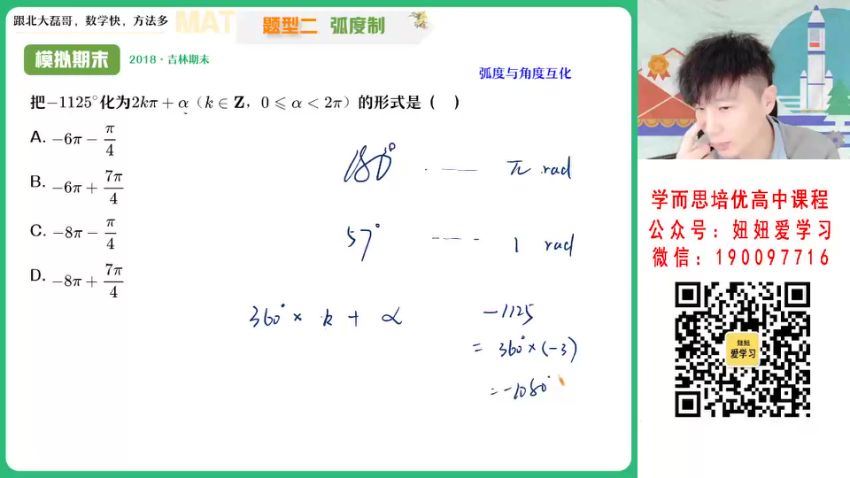 跟北大磊哥，数学快，方法多
MAT
题型二 弧度制
模拟期末
2018·吉林期末
弧度与角度互化
把−1125°化为2kπ + α（k ∈ Z，0 ⩽ α < 2π）的形式是（ ）
A. −6π − π/4
B. −6π + 7π/4
C. −8π − π/4
D. −8π + 7π/4
180° ---- π rad
57° ---- 1 rad
360° × k + α
−1125
= 360° × (−3)
= −1080°
学而思培优高中课程
公众号：妞妞爱学习
微信：190097716
妞妞
爱学习